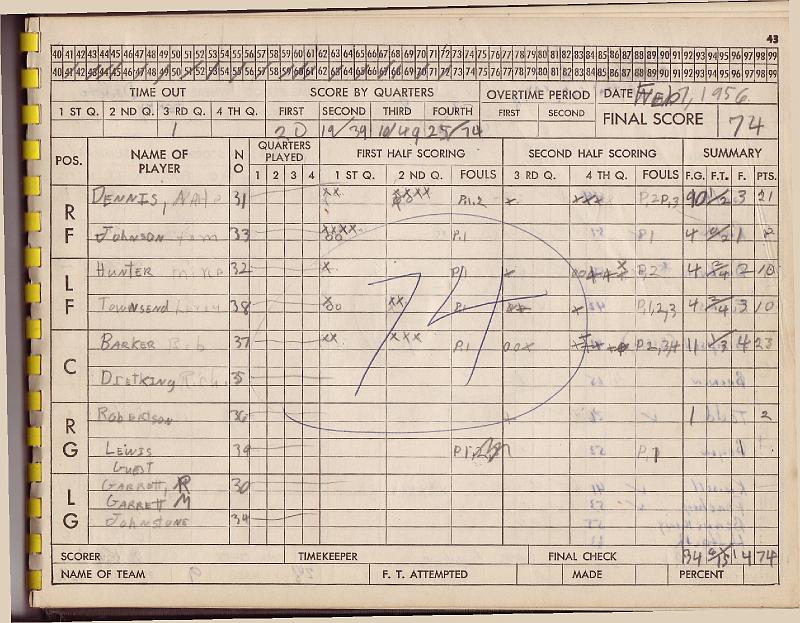 43
40 41 42 43 44 45 46 47 48 49 50 51 52 53 54 55 56 57 58 59 60 61 62 63 64 65 66 67 68 69 70 71 72 73 74 75 76 77 78 79 80 81 82 83 84 85 86 87 88 89 90 91 92 93 94 95 96 97 98 99
40 41 42 43 44 45 46 47 48 49 50 51 52 53 54 55 56 57 58 59 60 61 62 63 64 65 66 67 68 69 70 71 72 73 74 75 76 77 78 79 80 81 82 83 84 85 86 87 88 89 90 91 92 93 94 95 96 97 98 99
TIME OUT SCORE BY QUARTERS OVERTIME PERIOD DATE 1956
1 ST Q. 2 ND Q. 3 RD Q. 4 TH Q. FIRST SECOND THIRD FOURTH FIRST SECOND FINAL SCORE 74
1 20 19/39 10/49 25/74
POS. NAME OF PLAYER NO QUARTERS PLAYED FIRST HALF SCORING SECOND HALF SCORING SUMMARY
1 2 3 4 1 ST Q. 2 ND Q. FOULS 3 RD Q. 4 TH Q. FOULS F.G. F.T. F. PTS.
RF DENNIS, 31 xx P,1,2 x xxx P,2 P,3 3 21
JOHNSON Tom 33 xxxx P,1 4 1
LF HUNTER Mike 32 x P,1 x P,2 4 2 10
TOWNSEND Larry 38 xx P,1 x P,1,2,3 4 3 10
C BARKER Bob 37 xx xxx P,1 oox P 2,3,4 11 1/3 4 23
DIETKING Rich 35
RG ROBERTSON 36 1 2
LEWIS 39 P,1
GUEST
LG GARRETT, R 30
GARRETT M
JOHNSTONE 34
74
SCORER TIMEKEEPER FINAL CHECK 34 14 74
NAME OF TEAM F. T. ATTEMPTED MADE PERCENT